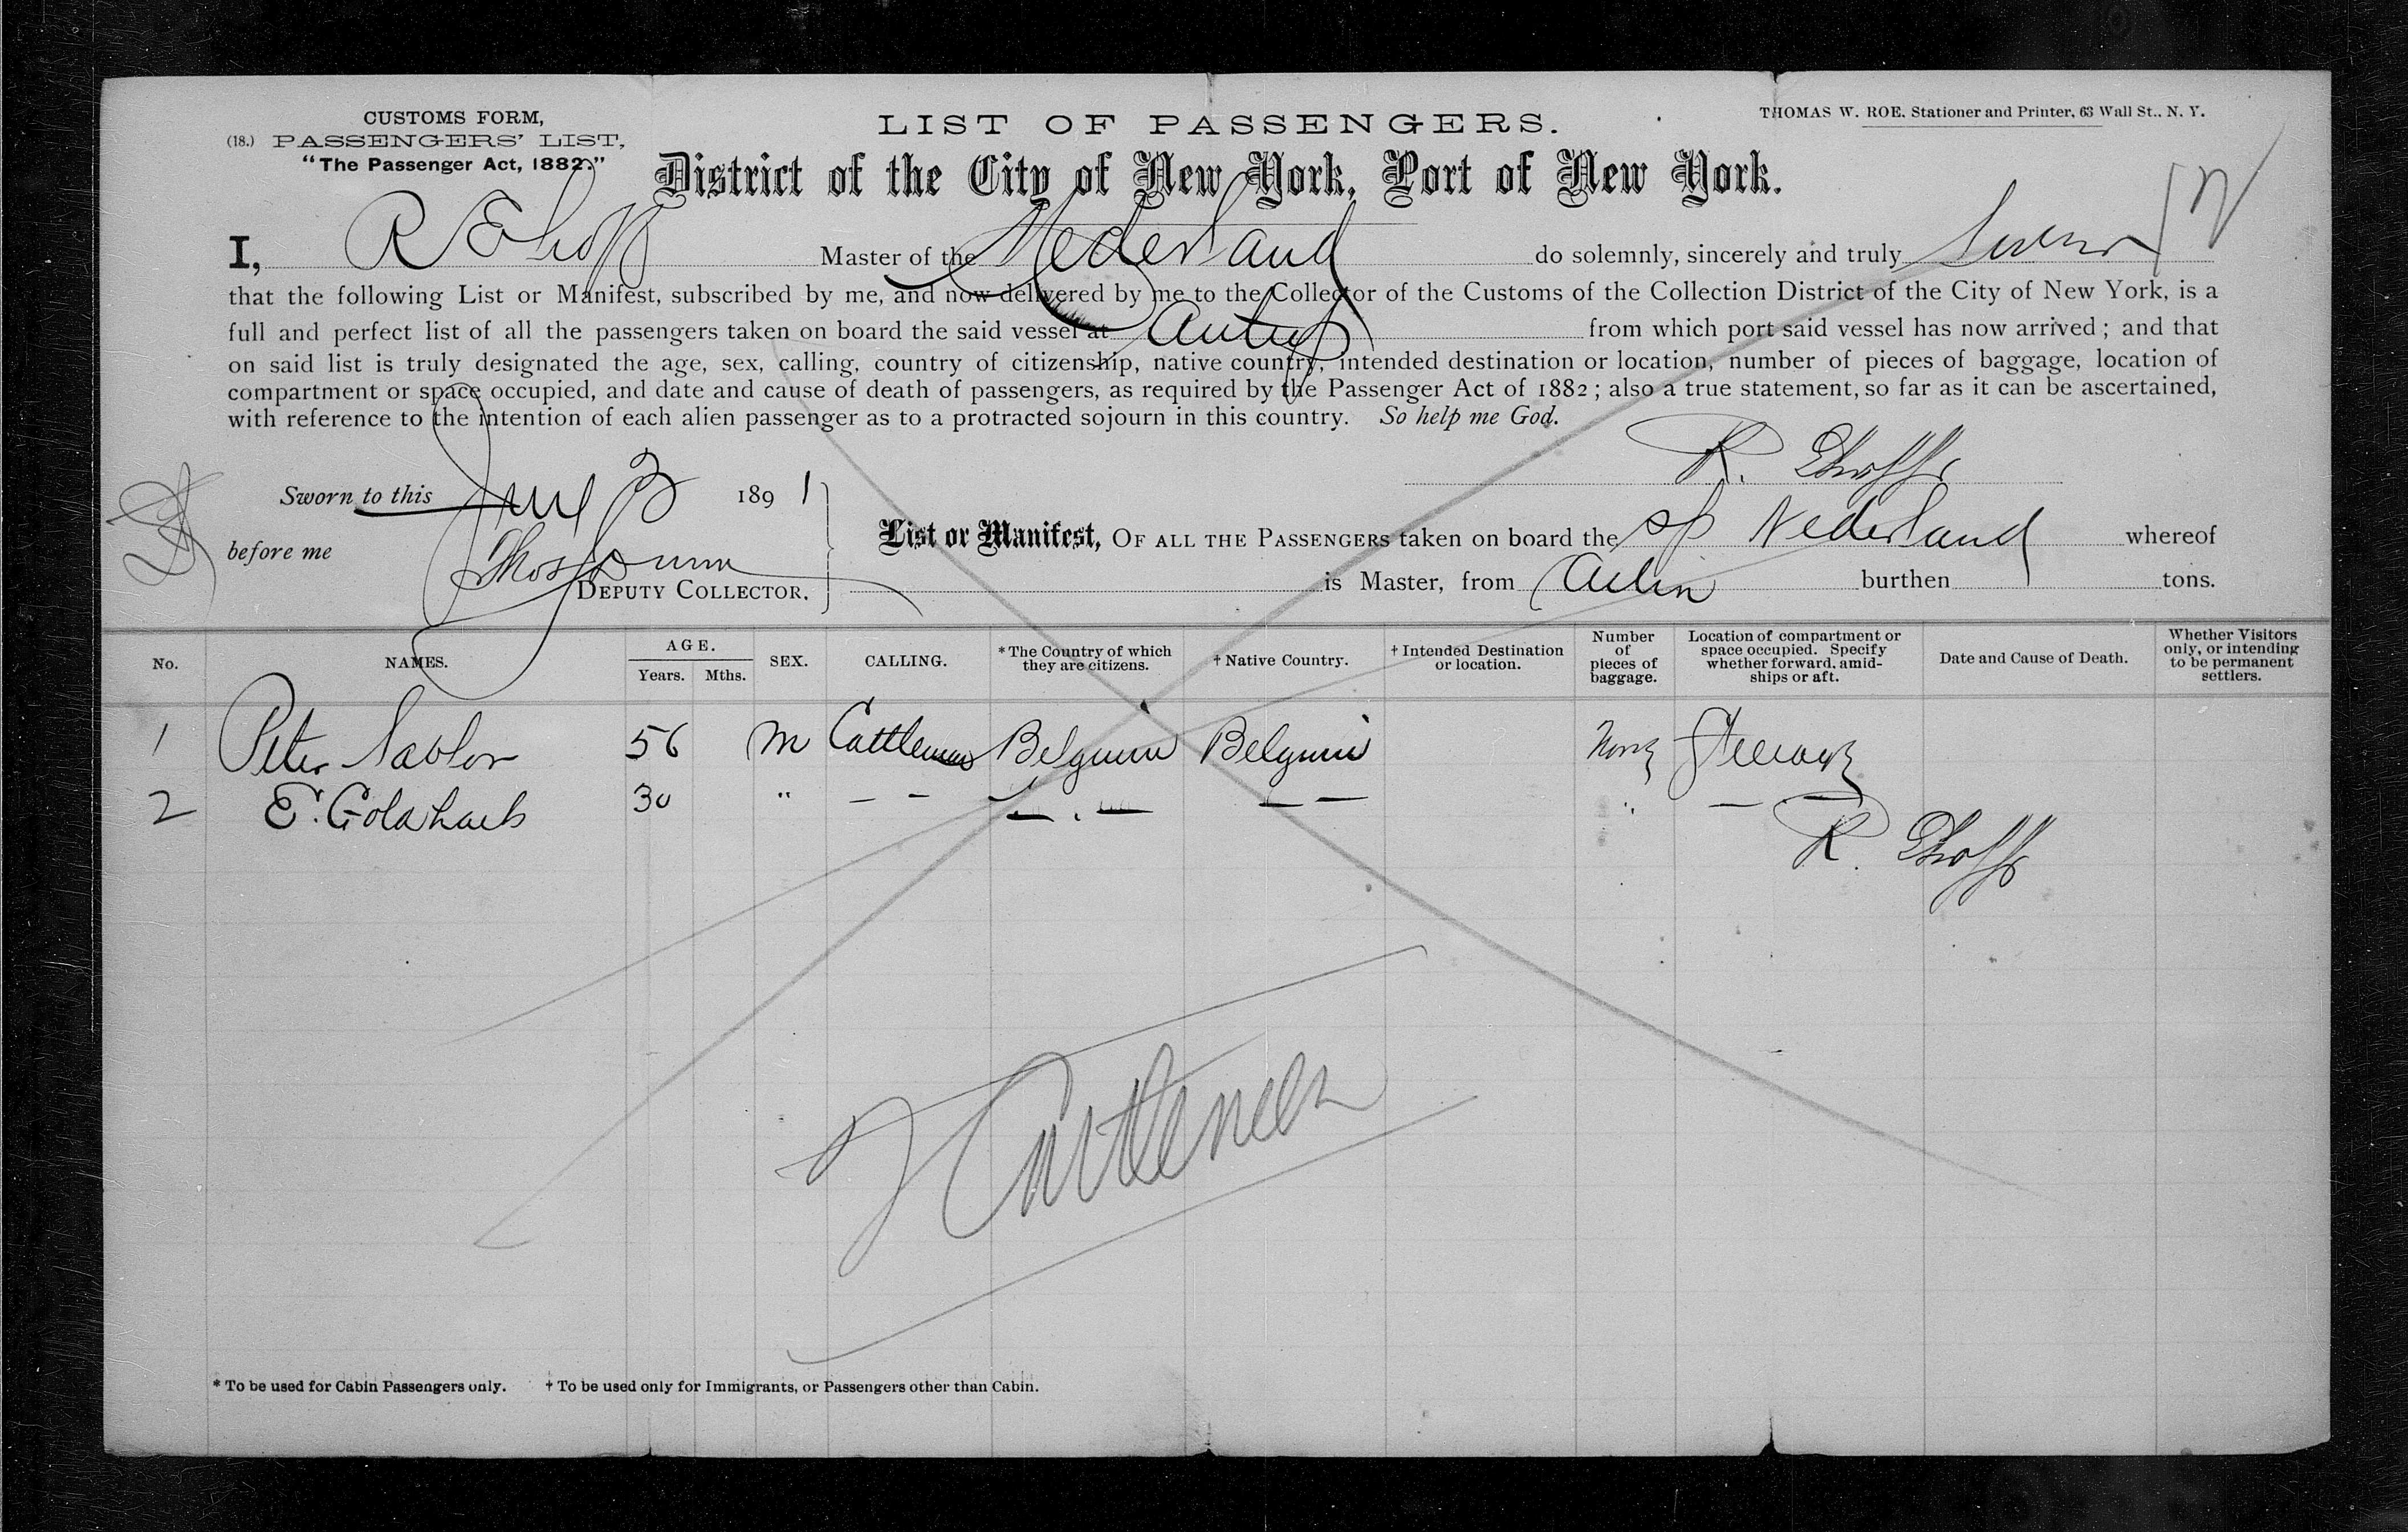 CUSTOMS FORM,
(18.) PASSENGERS' LIST,
"The Passenger Act, 1882."
LIST OF PASSENGERS.
THOMAS W. ROE, Stationer and Printer, 63 Wall St., N. Y.
District of the City of New York, Port of New York.
I, R Ehoff Master of the Nederland do solemnly, sincerely and truly Swear
that the following List or Manifest, subscribed by me, and now delivered by me to the Collector of the Customs of the Collection District of the City of New York, is a
full and perfect list of all the passengers taken on board the said vessel at Antwp from which port said vessel has now arrived; and that
on said list is truly designated the age, sex, calling, country of citizenship, native country, intended destination or location, number of pieces of baggage, location of
compartment or space occupied, and date and cause of death of passengers, as required by the Passenger Act of 1882; also a true statement, so far as it can be ascertained,
with reference to the intention of each alien passenger as to a protracted sojourn in this country. So help me God.
R. Ehoff
Sworn to this 3 1891
before me Thos Dunn
DEPUTY COLLECTOR.
List or Manifest, OF ALL THE PASSENGERS taken on board the Nederland whereof
is Master, from burthen tons.
No. NAMES. AGE. Years. Mths. SEX. CALLING. * The Country of which they are citizens. † Native Country. † Intended Destination or location. Number of pieces of baggage. Location of compartment or space occupied. Specify whether forward, amidships or aft. Date and Cause of Death. Whether Visitors only, or intending to be permanent settlers.
1 Peter 56 M Cattleman Belgium Belgium None Steerage
2 E. Goldhaeb 30 " — — — . — — — " — —
R. Ehoff
Cattlemen
* To be used for Cabin Passengers only. † To be used only for Immigrants, or Passengers other than Cabin.